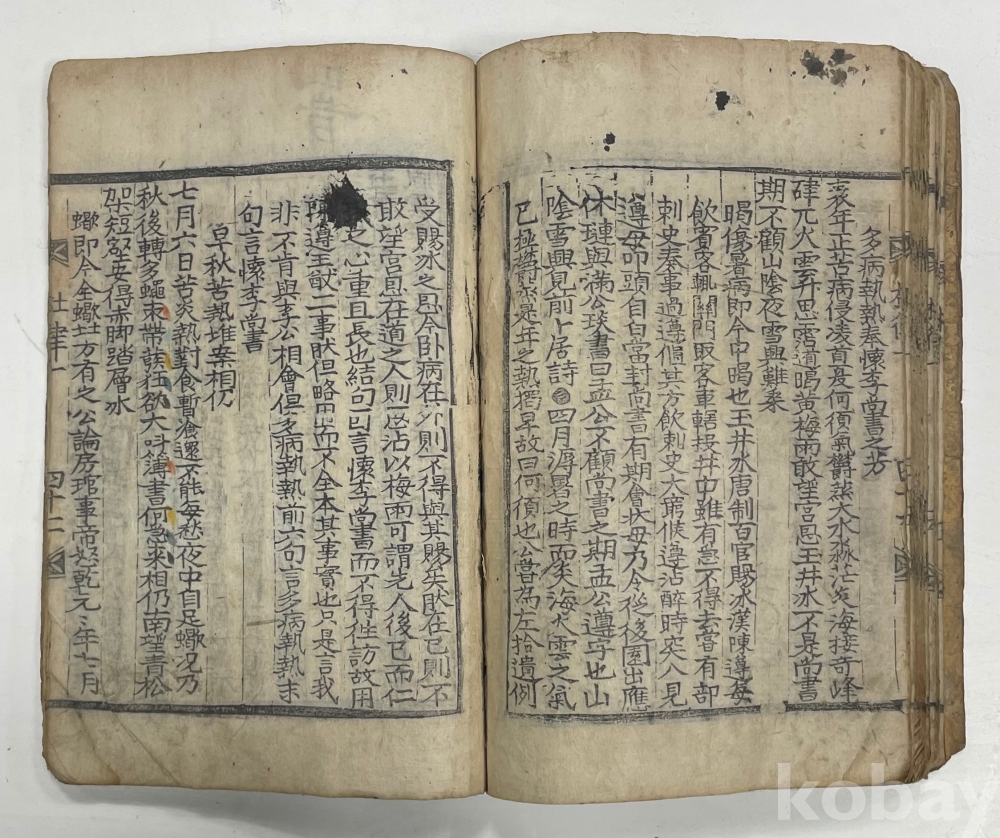 多病執熱奉懷李尚書之芳
衰年正苦病侵凌首夏何須氣欝蒸大水淼茫炎海接奇峰
硉兀火雲升思霑道暍黃梅雨敢望宮恩玉井水不是尚書
期不顧山陰夜雪興難乘
暍傷暑病即今中暍也玉井水唐制百官賜氷漢陳遵每
飲賓客輒關門取客車轄投井中雖有急不得去嘗有部
刺史奏事過遵値其方飲刺史大窮候遵沾醉時突入見
遵母叩頭自白當封尚書有期會狀母乃令從後園出應
休璉與滿公琰書曰孟公不顧尚書之期孟公遵字也山
陰雪興見前卜居詩○四月溽暑之時而炎海火雲之氣
已極欝蒸是年之熱獨早故曰何須也公嘗為左拾遺例
受賜氷之恩今卧病在外則不得與其賜矣然在已則不
敢望宮恩在道之人則思沾以梅雨可謂先人後已而仁
之心重且長也結句又言懷李尚書而不得往訪故用
陳遵王猷二事然但略用而不全本其事實也只是言我
非不肯與李公相會但多病執熱前六句言多病執熱末
句言懷李尚書
早秋苦熱堆案相仍
七月六日苦炎熱對食暫飡還不能每愁夜中自足蠍况乃
秋後轉多蠅束帶發狂欲大呌簿書何急來相仍南望青松
架短壑安得赤脚踏層氷
蠍即今全蠍北方有之公論房琯事帝怒乾元元年七月
杜律一
四十二
kobay